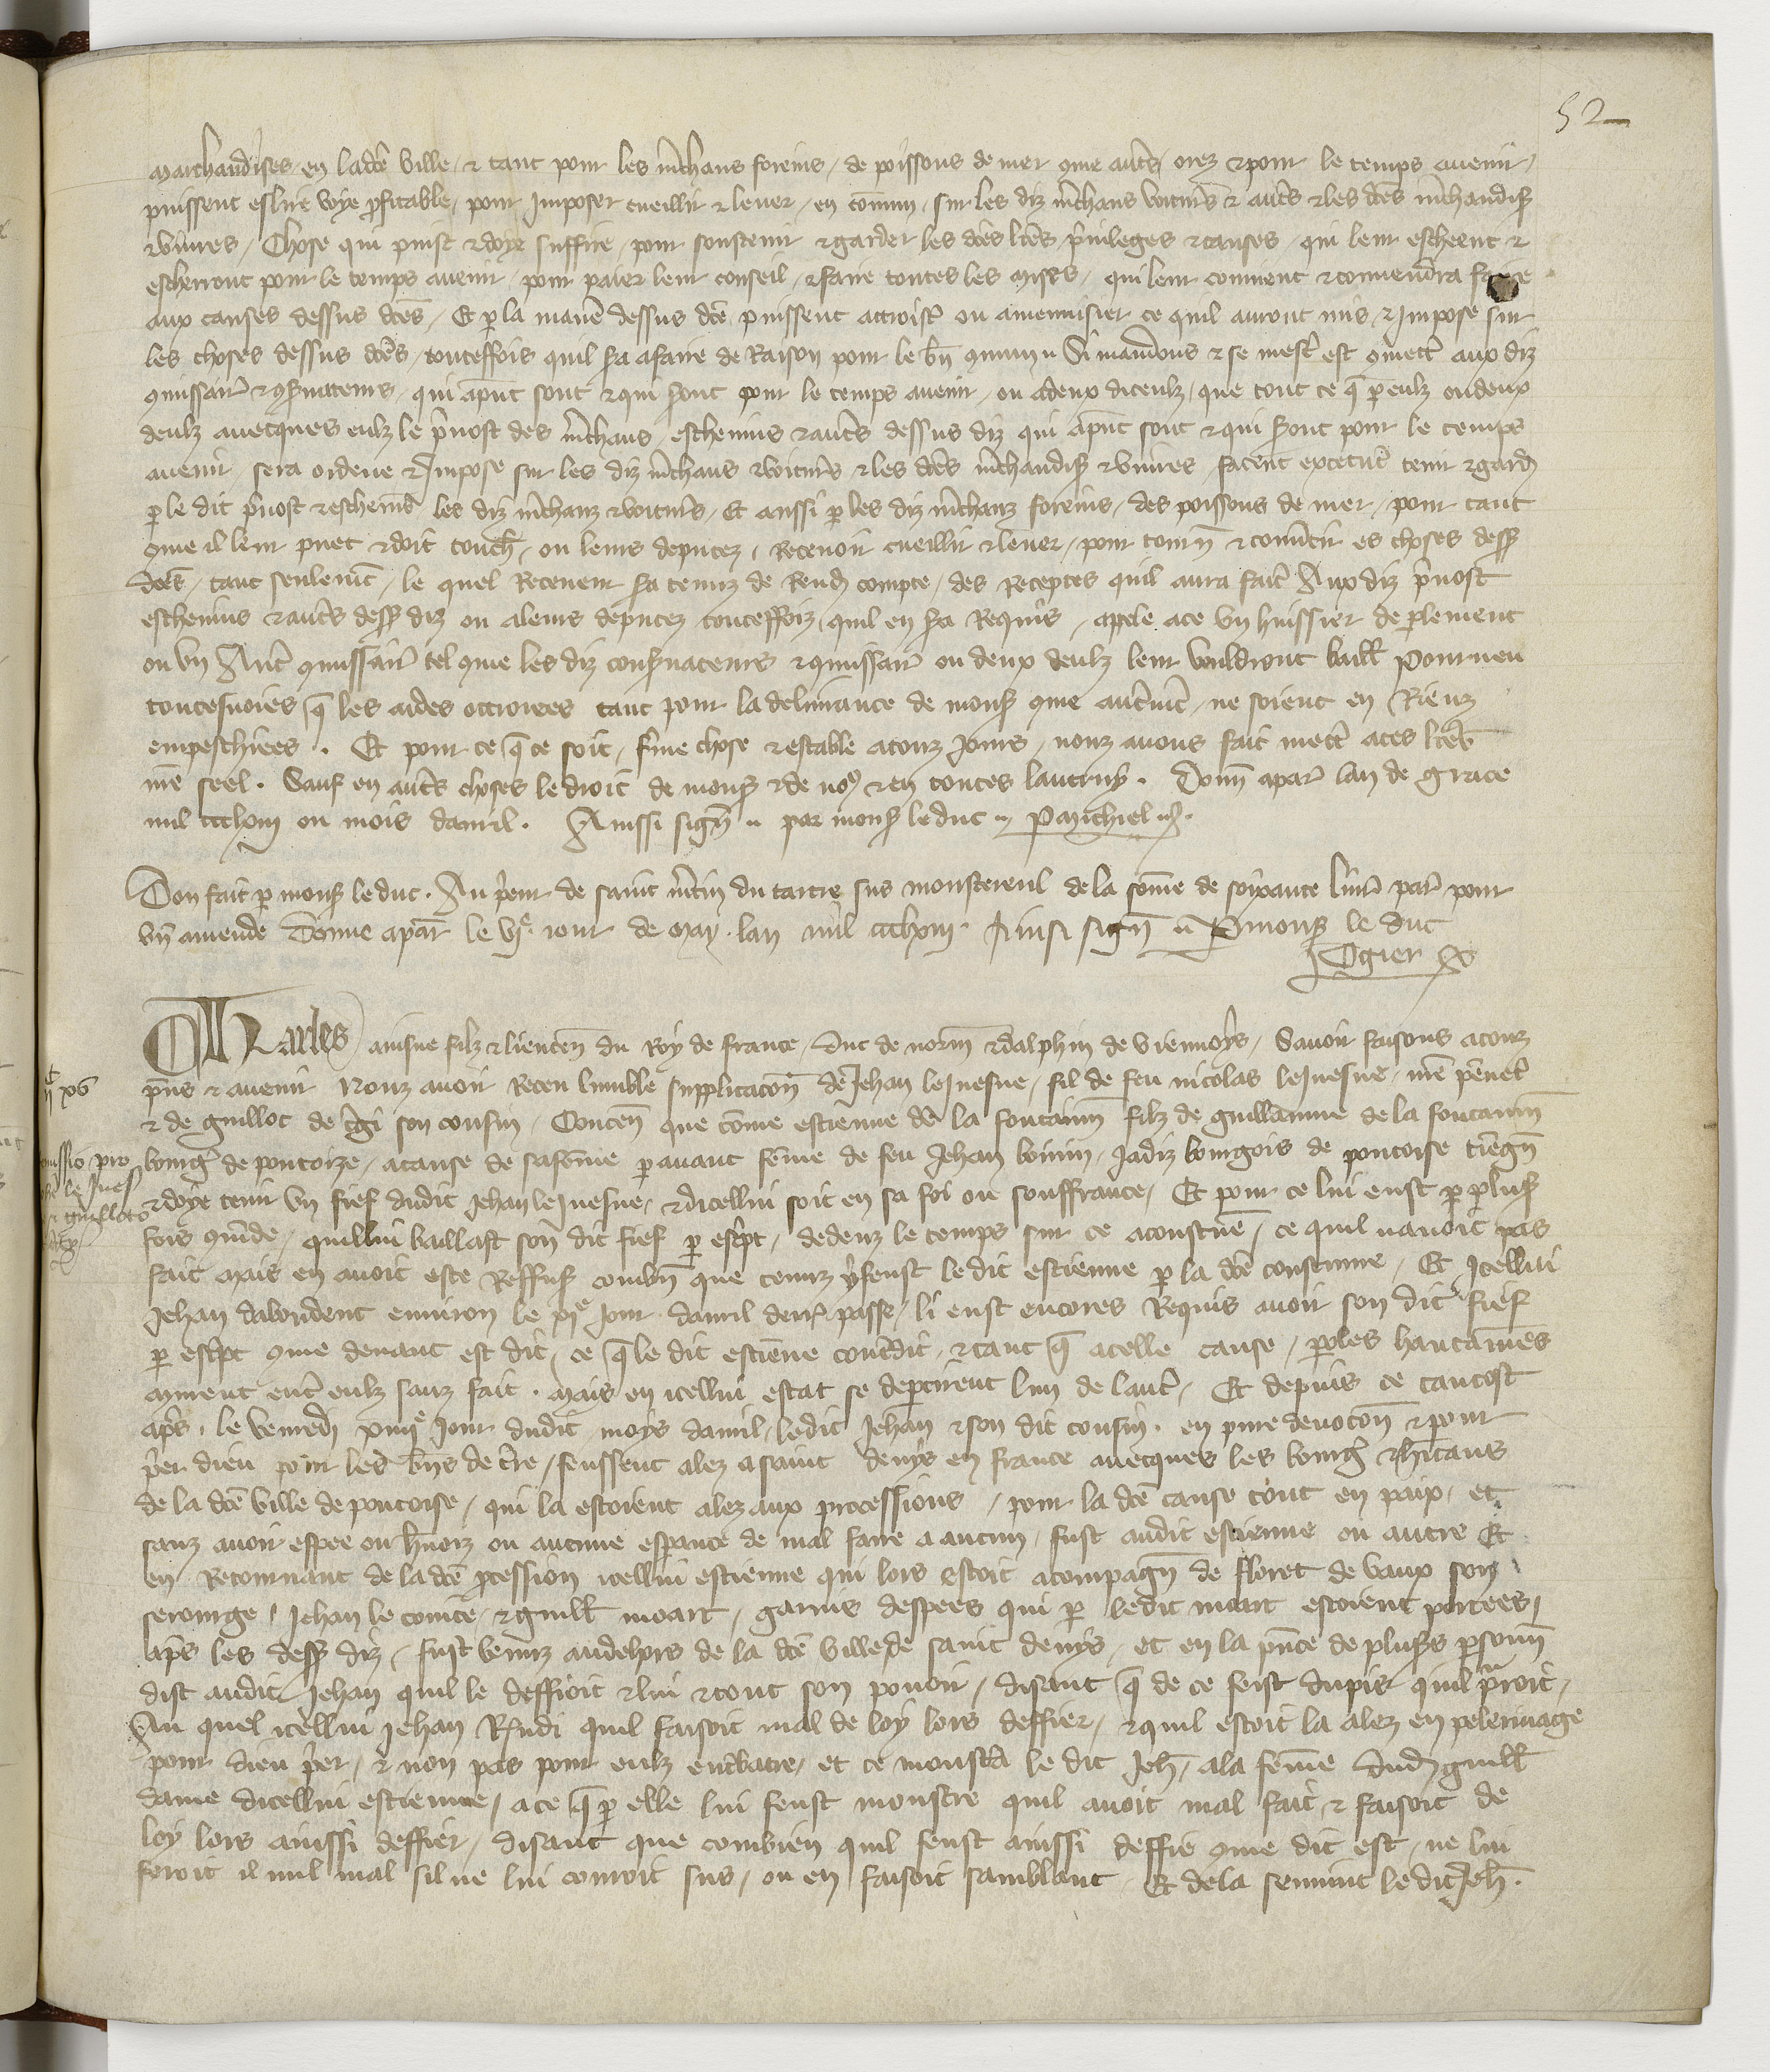 52
marchandises en ladce ville & tant pour les mchans forains de poissons de mer 9me autres orez & pour le temps avenir
puissent eslire voye profitable pour Imposer cueillir & lever en commun sur les diz mchans voitur̃s & autrs & les dces mchandis̃
& vivres Chose qui puist & doye suffire pour soustenir & garder les dces lrẽs previleges & causes qui leur escheent &
escherront pour le temps avenir pour paier leur conseil & faire toutes les mises qui leur convient & convendra faire
aux causes dessus dces Et p la manẽ dessus dce puissent accroist̃ ou amenuisier ce quil auront mis & Impose sur
les choses dessus dces touteffois quil sa afaire de Raison pour le bñ 9mun Si mandons & se mest̃ est 9mett̃ aux diz
9missair̃ & 9servateurs qui apñt sont & qui seront pour le temps avenir ou a deux diceulx que tout ce q̃ p eulz ou deux
deulz avecques eulz le p̃vost des m̃chans eschevins & autrs dessus diz qui apñt sont & qui seront pour le temps
avenir sera ordene & Impose sur les diz m̃chans & voitur̃s & les dces m̃chandis̃ & vivres facent excecut̃ tenir & gard̃
p le dit p̃vost & eschevins les diz m̃chanz & voitur̃s Et aussi p les diz m̃chanz forains des poissons de mer pour tant
9me il leur puet & doit touch̃ ou leurs deputez Recevoir cueillir & lever pour tourñ & convertir es choses dess̃
dces tant seulemt̃ le quel Receveur sa tenuz de Rend̃ compte des Receptes quil aura fait̃ Aux diz p̃vost
eschevins & autrs dess̃ diz ou aleurs deputez touteffoiz quil en sa Requis apele ace un huissier de plement
ou un Aut̃ 9missair̃ tel 9me les diz conservateurs & 9missair̃ ou deux deulz leur vouldront baill̃ Pourveu
toutesvoies q̃ les aides ottroiees tant pour la delivrance de mons̃ 9me autremt̃ ne soient en Rienz
empeschiees . Et pour ce q̃ ce soit ferme chose & estable atouz Jours nouz avons fait mett̃ aces lrẽs
nrẽ seel . Sauf en autrs choses le droit de mons̃ & de no9 & en toutes lautruy . Donñ apar̃ lan de grace
mil ccclviii ou mois davril . Aussi sign̄ par mons̃ le duc P michiel
Don fait p mons̃ le duc . Au p̃eur de saint m̃tin du tartre sus monstereul de la somme de soixante livr̃ par̃ pour
un amende Donne apar̃ le vie jour de may lan mil ccclviii Ainsi sign̄ P mons̃ le duc
Ogier
Charles ainsne filz & lieuteñ du Roy de france duc de norm̃ & dalphin de viennoys Savoir faisons atouz
p̃ns & avenir Nouz avoir Receu lumble supplicacoñ de Jehan le Juesne fil de feu nicolas le Juesne
& de guillot de son cousin Conteñ que cõme estienne de la fontainñ filz de guillaume de la fontainñ
bourg̃ de pontoize acause de sa fem̃e p avant fem̃e de feu Jehan boivin Jadiz bourgois de pontoise tiegñ
& doye tenir un fief dudit Jehan le Juesne & dicellui soit en sa foi ou souffrance Et pour ce lui eust p plus̃
fois 9mãde quil lui baillast son dit fief p escript dedenz le temps sur ce acoustumẽ ce quil navoit pas
fait mais en avoit este Reffus̃ combñ que tenuz y feust le dit estienne p la dce coustume Et Icellui
Jehan dabondent environ le xie jour davril derr̃ passe li eust encores Requis avoir son dit fief
p escript 9me devant est dit ce q̃ le dit estienne cont̃dit & tant q̃ acelle cause poles hautaines
meurent ent̃ eulz sanz fait . mais en icellui estat se deptirent lun de laut̃ Et depuis ce tantost
aprs le vendredi xiiije Jour dudit moys davril le dit Jehan & son dit cousin en pure devocoñ & pour
p̃er dieu pour les bñs de t̃re feussent alez a saint denys en france avecques les bourg̃ & hĩtans
de la dce ville de pontoise qui la estoient alez aux processions pour la dce cause tout en paix et
sanz avoir espee ou h̃nois ou aucune espance de mal faire a aucun fust audit estienne ou autre Et
en Retournant de la dce pcession icellui estienne qui lors estoit acompagñ de floret de vaux son
serourge Jehan le conte & guill̃ moart garnis despees qui p ledit moart estoient portees
aprs les dess̃ diz fust venuz au dehors de la dce ville de saint denys et en la p̃nce de plus̃s psonñ
dist audit Jehan quil le deffioit & lui & tout son povoir disant q̃ de ce feist du pis quil p̃roit
Au quel icellui Jehan R̃ndi quil faisoit mal de loy lors deffier & quil estoit la alez en pelerinage
pour dieu p̃er & non pas pour eulz embatre et ce monstra le dit Jeh̃ ala fem̃e dud̃ guill̃
dame dicellui estienne ace q̃ p elle lui feust monstre quil avoit mal fait & faisoit de
loy lors ainssi deffier disant que combien quil feust ainssi deffie 9me dit est ne lui
feroit il nul mal sil ne lui couroit sus ou en faisoit samblant Et dela sen vint le dit Jeh̃ .